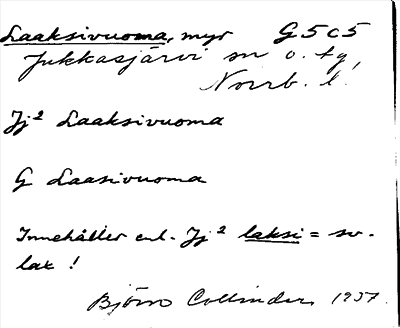 Laaksivuoma, myr G5c5
Jukkasjärvi sn o. tg,
Norrb. l.
Jj² Laaksivuoma
G Laasivuoma
Innehåller enl. Jj² laksi = sv.
lax !
Björn Collinder 1937.